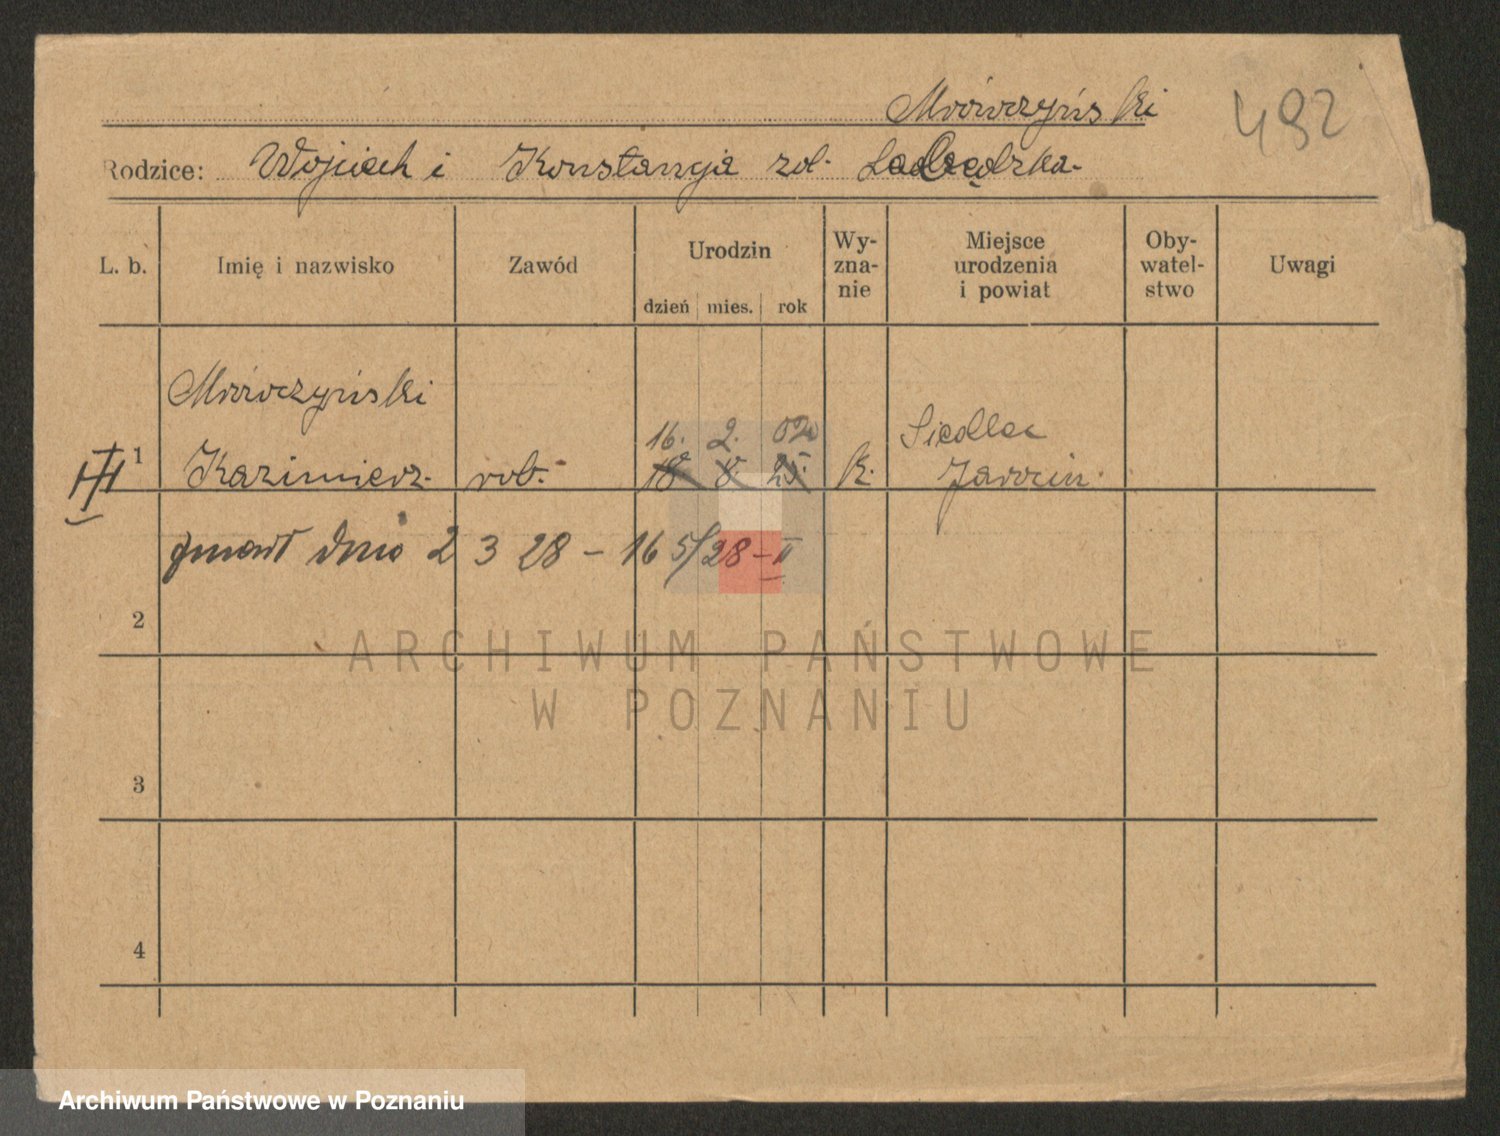 Mrówczyński
492
Rodzice: Wojciech i Konstancja zd.
L. b. Imię i nazwisko Zawód Urodzin dzień mies. rok Wy-zna-nie Miejsce urodzenia i powiat Oby-watel-stwo Uwagi
Mrówczyński
16. 2. 02 Siedlec
1 Kazimierz rob. 18 8. 25. k. Jarocin.
zmarł dnia 2 3 28 – 16 5/28 – II
2
ARCHIWUM PAŃSTWOWE
W POZNANIU
3
4
Archiwum Państwowe w Poznaniu